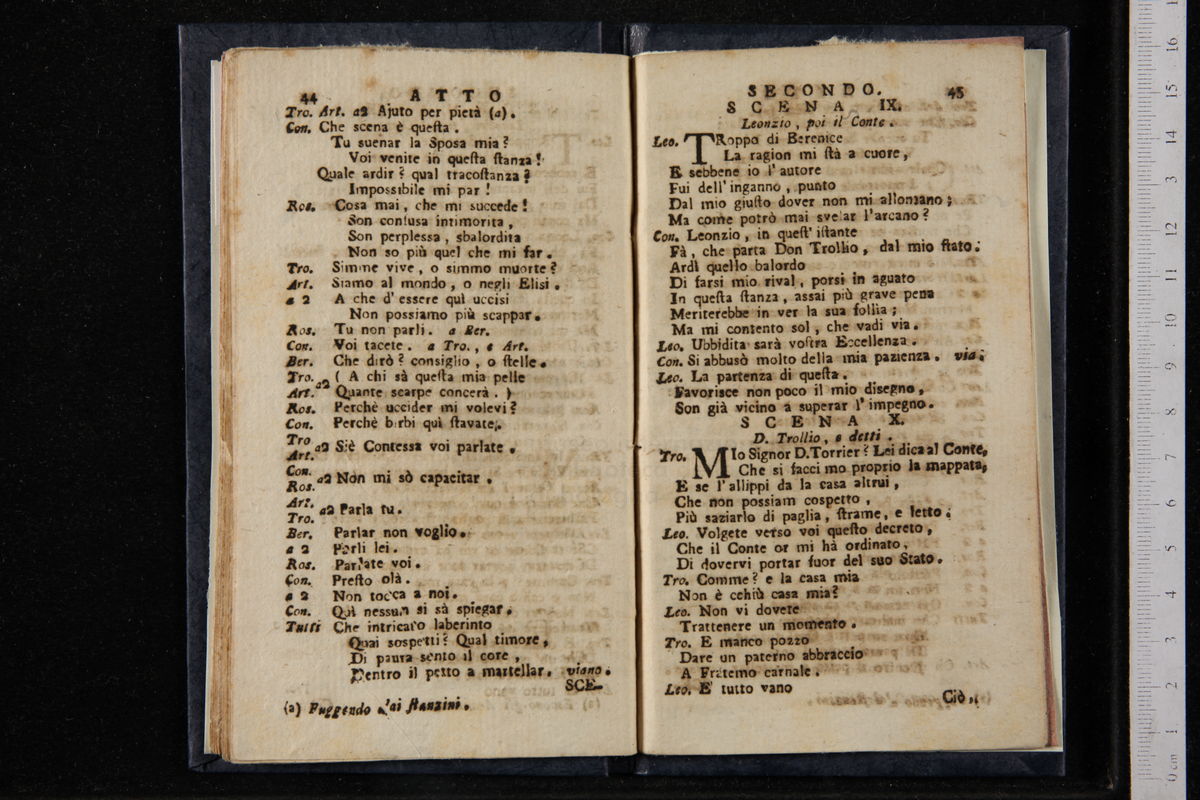 44 ATTO
Tro. Art. a2 Ajuto per pietà (a).
Con. Che scena è queſta .
Tu suenar la Sposa mia ?
Voi venite in queſta ſtanza !
Quale ardir ? qual tracoſtanza ?
Impossibile mi par !
Ros. Cosa mai, che mi succede !
Son confusa intimorita ,
Son perplessa , sbalordita
Non so più quel che mi far .
Tro. Simme vive , o simmo muorte ?
Art. Siamo al mondo , o negli Elisi .
a 2 A che d' essere quì uccisi
Non possiamo più scappar .
Ros. Tu non parli . a Ber.
Con. Voi tacete . a Tro. , e Art.
Ber. Che dirò ? consiglio , o ſtelle .
Tro. a2 ( A chi sà queſta mia pelle
Art. Quante scarpe concerà . )
Ros. Perchè uccider mi volevi ?
Con. Perchè birbi quì ſtavate .
Tro
Art. a2 Siè Contessa voi parlate .
Con.
Ros. a2 Non mi sò capacitar .
Art.
Tro. a2 Parla tu .
Ber. Parlar non voglio .
a 2 Parli lei .
Ros. Parlate voi .
Con. Preſto olà .
a 2 Non tocca a noi .
Con. Quì nessun si sà spiegar .
Tutti Che intricato laberinto
Quai sospetti ? Qual timore ,
Di paura sento il core ,
Dentro il petto a martellar . viano .
SCE-
(a) Fuggendo dai ſtanzini .
SECONDO. 45
SCENA IX.
Leonzio , poi il Conte .
Leo. TRoppo di Berenice
La ragion mi ſtà a cuore ,
E sebbene io l' autore
Fui dell' inganno , punto
Dal mio giuſto dover non mi allontano ;
Ma come potrò mai svelar l'arcano ?
Con. Leonzio , in queſt' iſtante
Fà , che parta Don Trollio , dal mio ſtato :
Ardì quello balordo
Di farsi mio rival , porsi in aguato
In queſta ſtanza , assai più grave pena
Meriterebbe in ver la sua follia ;
Ma mi contento sol , che vadi via .
Leo. Ubbidita sarà voſtra Eccellenza .
Con. Si abbusò molto della mia pazienza . via .
Leo. La partenza di queſta .
Favorisce non poco il mio disegno ,
Son già vicino a superar l' impegno .
SCENA X.
D. Trollio , e detti .
Tro. MIo Signor D. Torrier ? Lei dica al Conte,
Che si facci mo proprio la mappata,
E se l' allippi da la casa altrui ,
Che non possiam cospetto ,
Più saziarlo di paglia , ſtrame , e letto .
Leo. Volgete verso voi queſto decreto ,
Che il Conte or mi hà ordinato ,
Di dovervi portar fuor del suo Stato .
Tro. Comme ? e la casa mia
Non è cchiù casa mia ?
Leo. Non vi dovete
Trattenere un momento .
Tro. E manco pozzo
Dare un paterno abbraccio
A Fratemo carnale .
Leo. E' tutto vano
Ciò ,